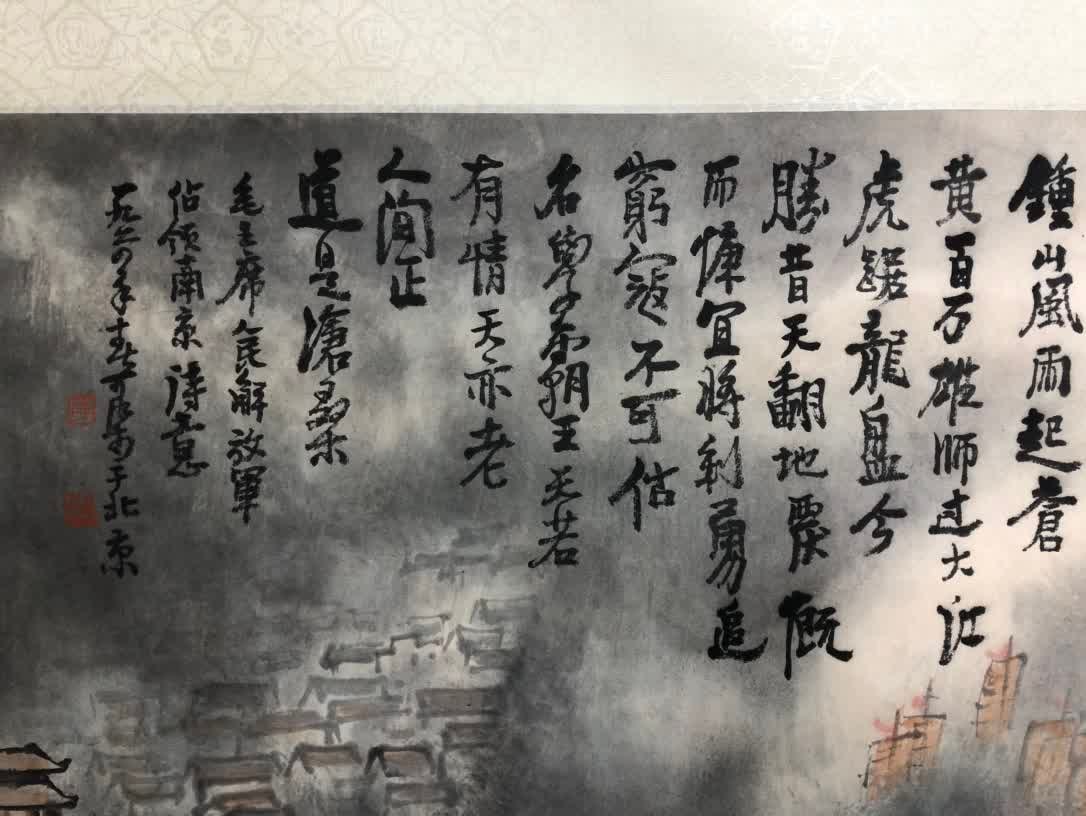 鍾山風雨起蒼
黄百万雄師过大江
虎踞龍盤今
勝昔天翻地覆慨
而慷宜將剩勇追
窮寇不可估
名學霸王天若
有情天亦老
人间正
道是滄桑
毛主席人民解放軍
佔领南京詩意
一九六四年春可染于北京